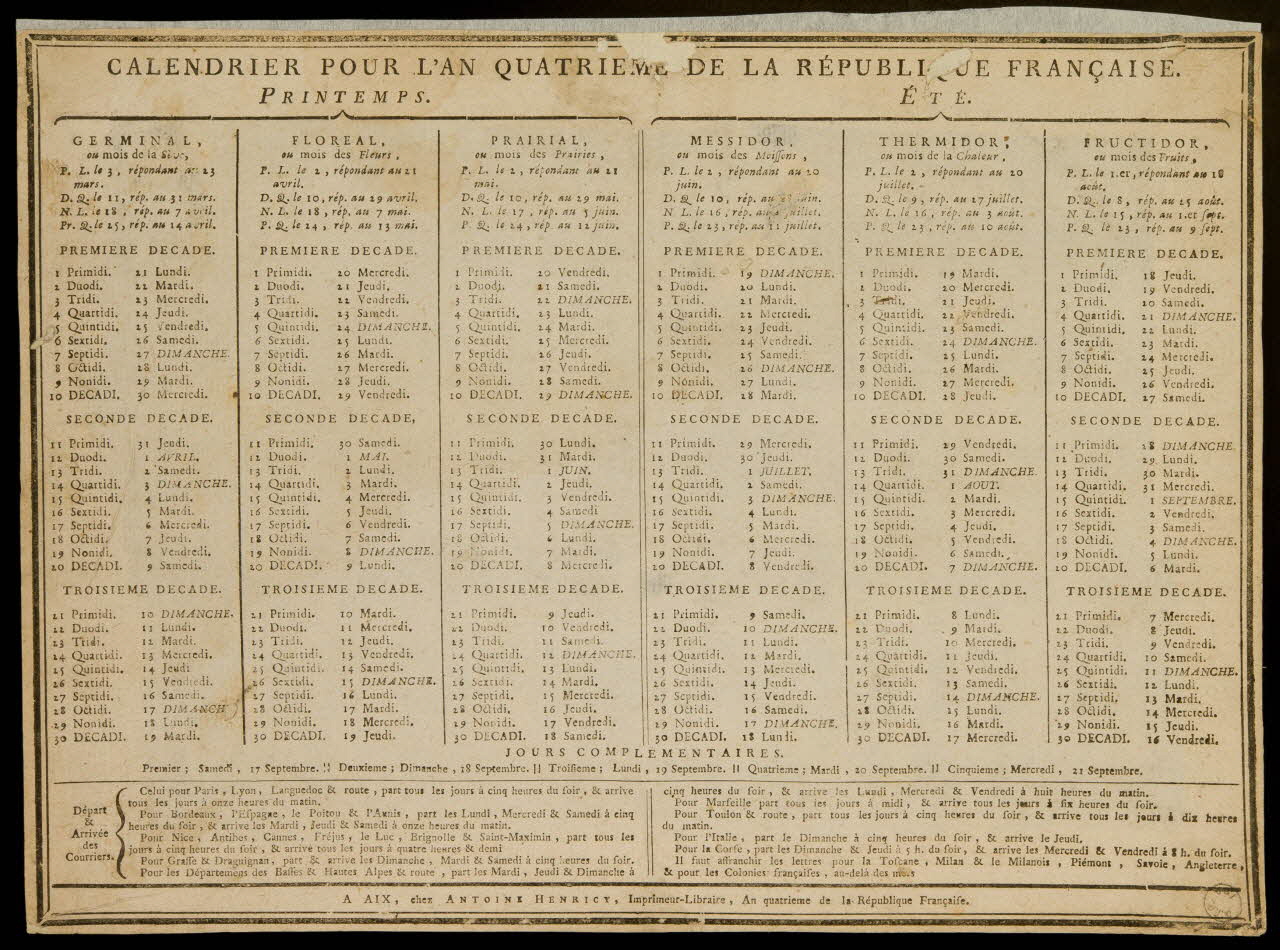 CALENDRIER POUR L'AN QUATRIEME DE LA RÉPUBLIQUE FRANÇAISE.
PRINTEMPS.
GERMINAL,
ou mois de la Séve,
P. L. le 3, répondant au 23
mars.
D. Q. le 11, rép. au 31 mars.
N. L. le 18, rép. au 7 avril.
Pr. Q. le 25, rép. au 14 avril.
PREMIERE DECADE.
1 Primidi. 21 Lundi.
2 Duodi. 22 Mardi.
3 Tridi. 23 Mercredi.
4 Quartidi. 24 Jeudi.
5 Quintidi. 25 Vendredi.
6 Sextidi. 26 Samedi.
7 Septidi. 27 DIMANCHE.
8 Octidi. 28 Lundi.
9 Nonidi. 29 Mardi.
10 DECADI. 30 Mercredi.
SECONDE DECADE.
11 Primidi. 31 Jeudi.
12 Duodi. 1 AVRIL.
13 Tridi. 2 Samedi.
14 Quartidi. 3 DIMANCHE.
15 Quintidi. 4 Lundi.
16 Sextidi. 5 Mardi.
17 Septidi. 6 Mercredi.
18 Octidi. 7 Jeudi.
19 Nonidi. 8 Vendredi.
20 DECADI. 9 Samedi.
TROISIEME DECADE.
21 Primidi. 10 DIMANCHE.
22 Duodi. 11 Lundi.
23 Tridi. 12 Mardi.
24 Quartidi. 13 Mercredi.
25 Quintidi. 14 Jeudi
26 Sextidi. 15 Vendredi.
27 Septidi. 16 Samedi.
28 Octidi. 17 DIMANCH
29 Nonidi. 18 Lundi.
30 DECADI. 19 Mardi.
FLOREAL,
ou mois des Fleurs,
P. L. le 2, répondant au 21
avril.
D. Q. le 10, rép. au 29 avril.
N. L. le 18, rép. au 7 mai.
P. Q. le 24, rép. au 13 mai.
PREMIERE DECADE.
1 Primidi. 20 Mercredi.
2 Duodi. 21 Jeudi.
3 Tridi. 22 Vendredi.
4 Quartidi. 23 Samedi.
5 Quintidi. 24 DIMANCHE.
6 Sextidi. 25 Lundi.
7 Septidi. 26 Mardi.
8 Octidi. 27 Mercredi.
9 Nonidi. 28 Jeudi.
10 DECADI. 29 Vendredi.
SECONDE DECADE,
11 Primidi. 30 Samedi.
12 Duodi. 1 MAI.
13 Tridi. 2 Lundi.
14 Quartidi. 3 Mardi.
15 Quintidi. 4 Mercredi.
16 Sextidi. 5 Jeudi.
17 Septidi. 6 Vendredi.
18 Octidi. 7 Samedi.
19 Nonidi. 8 DIMANCHE.
20 DECADI. 9 Lundi.
TROISIEME DECADE.
21 Primidi. 10 Mardi.
22 Duodi. 11 Mercredi.
23 Tridi. 12 Jeudi.
24 Quartidi. 13 Vendredi.
25 Quintidi. 14 Samedi.
26 Sextidi. 15 DIMANCHE.
27 Septidi. 16 Lundi.
28 Octidi. 17 Mardi.
29 Nonidi. 18 Mercredi.
30 DECADI. 19 Jeudi.
PRAIRIAL,
ou mois des Prairies,
P. L. le 2, répondant au 21
mai.
D. Q. le 10, rép. au 29 mai.
N. L. le 17, rép. au 5 juin.
P. Q. le 24, rép. au 12 juin.
PREMIERE DECADE.
1 Primidi. 20 Vendredi.
2 Duodi. 21 Samedi.
3 Tridi. 22 DIMANCHE.
4 Quartidi. 23 Lundi.
5 Quintidi. 24 Mardi.
6 Sextidi. 25 Mercredi.
7 Septidi. 26 Jeudi.
8 Octidi. 27 Vendredi.
9 Nonidi. 28 Samedi.
10 DECADI. 29 DIMANCHE.
SECONDE DECADE.
11 Primidi. 30 Lundi.
12 Duodi. 31 Mardi.
13 Tridi. 1 JUIN.
14 Quartidi. 2 Jeudi.
15 Quintidi. 3 Vendredi.
16 Sextidi. 4 Samedi
17 Septidi. 5 DIMANCHE.
18 Octidi. 6 Lundi.
19 Nonidi. 7 Mardi.
20 DECADI. 8 Mercredi.
TROISIEME DECADE.
21 Primidi. 9 Jeudi.
22 Duodi. 10 Vendredi.
23 Tridi. 11 Samedi.
24 Quartidi. 12 DIMANCHE.
25 Quintidi. 13 Lundi.
26 Sextidi. 14 Mardi.
27 Septidi. 15 Mercredi.
28 Octidi. 16 Jeudi.
29 Nonidi. 17 Vendredi.
30 DECADI. 18 Samedi.
ÉTÉ.
MESSIDOR,
ou mois des Moissons,
P. L. le 2, répondant au 20
juin.
D. Q. le 10, rép. au juin.
N. L. le 16, rép. au juillet.
P. Q. le 23, rép. au 11 juillet.
PREMIERE DECADE.
1 Primidi. 19 DIMANCHE.
2 Duodi. 20 Lundi.
3 Tridi. 21 Mardi.
4 Quartidi. 22 Mercredi.
5 Quintidi. 23 Jeudi.
6 Sextidi. 24 Vendredi.
7 Septidi. 25 Samedi.
8 Octidi. 26 DIMANCHE.
9 Nonidi. 27 Lundi.
10 DECADI. 28 Mardi.
SECONDE DECADE.
11 Primidi. 29 Mercredi.
12 Duodi. 30 Jeudi.
13 Tridi. 1 JUILLET.
14 Quartidi. 2 Samedi.
15 Quintidi. 3 DIMANCHE.
16 Sextidi. 4 Lundi.
17 Septidi. 5 Mardi.
18 Octidi. 6 Mercredi.
19 Nonidi. 7 Jeudi.
20 DECADI. 8 Vendredi.
TROISIEME DECADE.
21 Primidi. 9 Samedi.
22 Duodi. 10 DIMANCHE.
23 Tridi. 11 Lundi.
24 Quartidi. 12 Mardi.
25 Quintidi. 13 Mercredi.
26 Sextidi. 14 Jeudi.
27 Septidi. 15 Vendredi.
28 Octidi. 16 Samedi.
29 Nonidi. 17 DIMANCHE.
30 DECADI. 18 Lundi.
THERMIDOR,
ou mois de la Chaleur,
P. L. le 2, répondant au 20
juillet.
D. Q. le 9, rép. au 27 juillet.
N. L. le 16, rép. au 3 août.
P. Q. le 23, rép. au 10 août.
PREMIERE DECADE.
1 Primidi. 19 Mardi.
2 Duodi. 20 Mercredi.
3 Tridi. 21 Jeudi.
4 Quartidi. 22 Vendredi.
5 Quintidi. 23 Samedi.
6 Sextidi. 24 DIMANCHE.
7 Septidi. 25 Lundi.
8 Octidi. 26 Mardi.
9 Nonidi. 27 Mercredi.
10 DECADI. 28 Jeudi.
SECONDE DECADE.
11 Primidi. 29 Vendredi.
12 Duodi. 30 Samedi.
13 Tridi. 31 DIMANCHE.
14 Quartidi. 1 AOUT.
15 Quintidi. 2 Mardi.
16 Sextidi. 3 Mercredi.
17 Septidi. 4 Jeudi.
18 Octidi. 5 Vendredi.
19 Nonidi. 6 Samedi.
20 DECADI. 7 DIMANCHE.
TROISIEME DECADE.
21 Primidi. 8 Lundi.
22 Duodi. 9 Mardi.
23 Tridi. 10 Mercredi.
24 Quartidi. 11 Jeudi.
25 Quintidi. 12 Vendredi.
26 Sextidi. 13 Samedi.
27 Septidi. 14 DIMANCHE.
28 Octidi. 15 Lundi.
29 Nonidi. 16 Mardi.
30 DECADI. 17 Mercredi.
FRUCTIDOR,
ou mois des Fruits,
P. L. le 1.er, répondant au 18
août.
D. Q. le 8, rép. au 25 août.
N. L. le 15, rép. au 1.er sept.
P. Q. le 23, rép. au 9 sept.
PREMIERE DECADE.
1 Primidi. 18 Jeudi.
2 Duodi. 19 Vendredi.
3 Tridi. 20 Samedi.
4 Quartidi. 21 DIMANCHE.
5 Quintidi. 22 Lundi.
6 Sextidi. 23 Mardi.
7 Septidi. 24 Mercredi.
8 Octidi. 25 Jeudi.
9 Nonidi. 26 Vendredi.
10 DECADI. 27 Samedi.
SECONDE DECADE.
11 Primidi. 28 DIMANCHE.
12 Duodi. 29 Lundi.
13 Tridi. 30 Mardi.
14 Quartidi. 31 Mercredi.
15 Quintidi. 1 SEPTEMBRE.
16 Sextidi. 2 Vendredi.
17 Septidi. 3 Samedi.
18 Octidi. 4 DIMANCHE.
19 Nonidi. 5 Lundi.
20 DECADI. 6 Mardi.
TROISIEME DECADE.
21 Primidi. 7 Mercredi.
22 Duodi. 8 Jeudi.
23 Tridi. 9 Vendredi.
24 Quartidi. 10 Samedi.
25 Quintidi. 11 DIMANCHE.
26 Sextidi. 12 Lundi.
27 Septidi. 13 Mardi.
28 Octidi. 14 Mercredi.
29 Nonidi. 15 Jeudi.
30 DECADI. 16 Vendredi.
JOURS COMPLÉMENTAIRES.
Premier; Samedi, 17 Septembre. || Deuxieme; Dimanche, 18 Septembre. || Troisieme; Lundi, 19 Septembre. || Quatrieme; Mardi, 20 Septembre. || Cinquieme; Mercredi, 21 Septembre.
Départ
&
Arrivée
des
Courriers.
Celui pour Paris, Lyon, Languedoc & route, part tous les jours à cinq heures du soir, & arrive
tous les jours à onze heures du matin.
Pour Bordeaux, l'Espagne, le Poitou & l'Aunis, part les Lundi, Mercredi & Samedi à cinq
heures du soir, & arrive les Mardi, Jeudi & Samedi à onze heures du matin.
Pour Nice, Antibes, Cannes, Fréjus, le Luc, Brignolle & Saint-Maximin, part tous les
jours à cinq heures du soir, & arrive tous les jours à quatre heures & demi
Pour Grasse & Draguignan, part & arrive les Dimanche, Mardi & Samedi à cinq heures du soir.
Pour les Départemens des Basses & Hautes Alpes & route, part les Mardi, Jeudi & Dimanche à
cinq heures du soir, & arrive les Lundi, Mercredi & Vendredi à huit heures du matin.
Pour Marseille part tous les jours à midi, & arrive tous les jours à six heures du soir.
Pour Toulon & route, part tous les jours à cinq heures du soir, & arrive tous les jours à dix heures
du matin.
Pour l'Italie, part le Dimanche à cinq heures du soir, & arrive le Jeudi.
Pour la Corse, part les Dimanche & Jeudi à 5 h. du soir, & arrive les Mercredi & Vendredi à 8 h. du soir.
Il faut affranchir les lettres pour la Toscane, Milan & le Milanois, Piémont, Savoie, Angleterre,
& pour les Colonies françaises, au-delà des mers
A AIX, chez ANTOINE HENRICY, Imprimeur-Libraire, An quatrieme de la République Française.